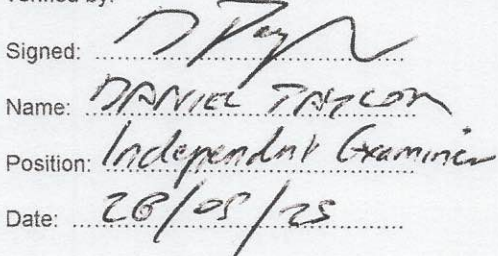 Verified by:
Signed:
Name: DANIEL TAYLOR
Position: Independent Examiner
Date: 28/05/25